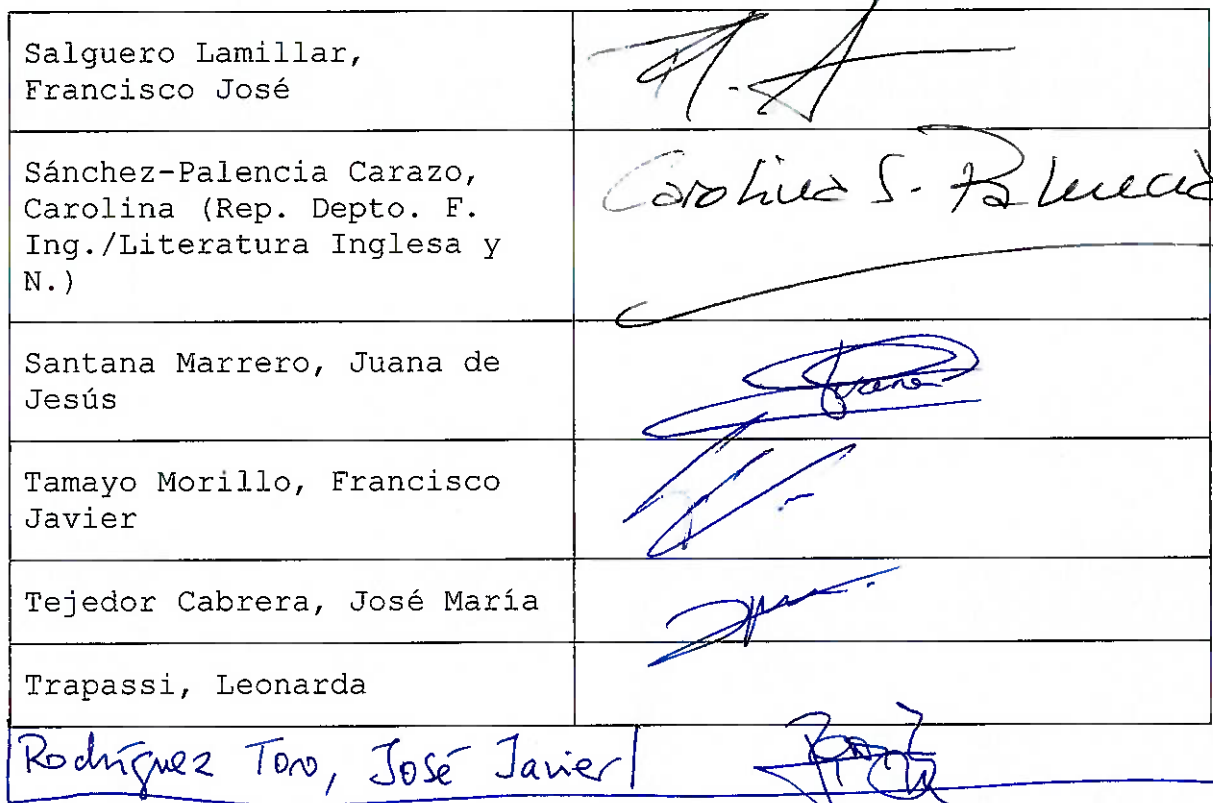 Salguero Lamillar,
Francisco José
Sánchez-Palencia Carazo,
Carolina (Rep. Depto. F.
Ing./Literatura Inglesa y
N.)
Carolina S. Palencia
Santana Marrero, Juana de
Jesús
Tamayo Morillo, Francisco
Javier
Tejedor Cabrera, José María
Trapassi, Leonarda
Rodríguez Toro, José Javier